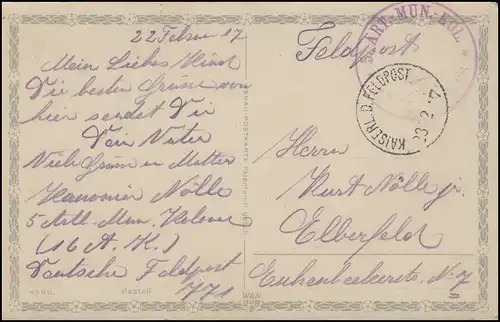 22 Febru 17
Mein Liebes Kind
Die besten Grüsse von
hier sendet Dir
Dein Vater
Viele Grüsse an Mutter
Kanonier Nölle
5 Artl. Mun. Kolone
(16 A.K.)
Deutsche Feldpost
771
Feldpost
5. ART.-MUN.-KOL. *
KAISERL. D. FELDPOST
23.2. 17
Herrn
Kurt Nölle jr.
Elberfeld
N. 7